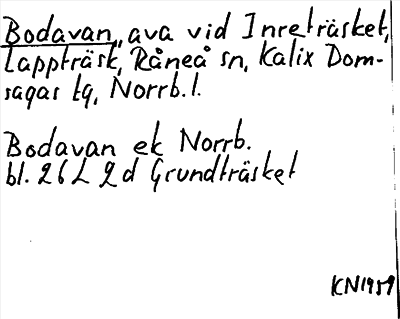 Bodavan, ava vid Inreträsket,
Lappträsk, Råneå sn, Kalix Dom-
sagas tg, Norrb. l.
Bodavan ek Norrb.
bl. 26 L 2 d Grundträsket
KN1959